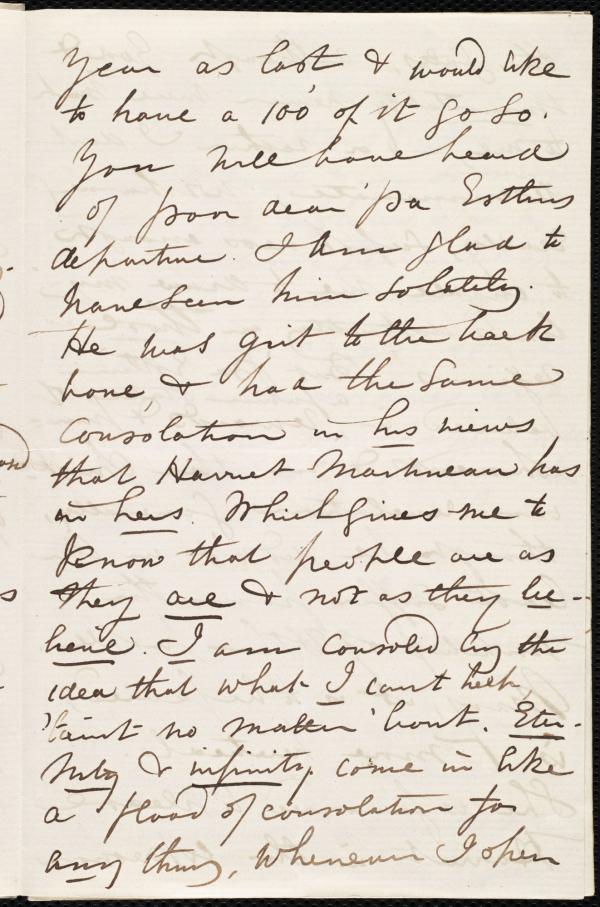 Year as last, & would like
to have a 100 of it go so.
You will have heard
of poor dear 'pa Estlins
departure. I am glad to
have seen him so lately.
He was grit to the back
bone, & had the same
consolation in his views
that Harriet Martineau has
in hers. Which gives me to
know that people are as
they are & not as they be-
heve. I am consoled by the
idea that what I can't help,
'taint no matter 'bout. Eter-
nity & infinity come in like
a flood of consolation for
any thing, whenever I open